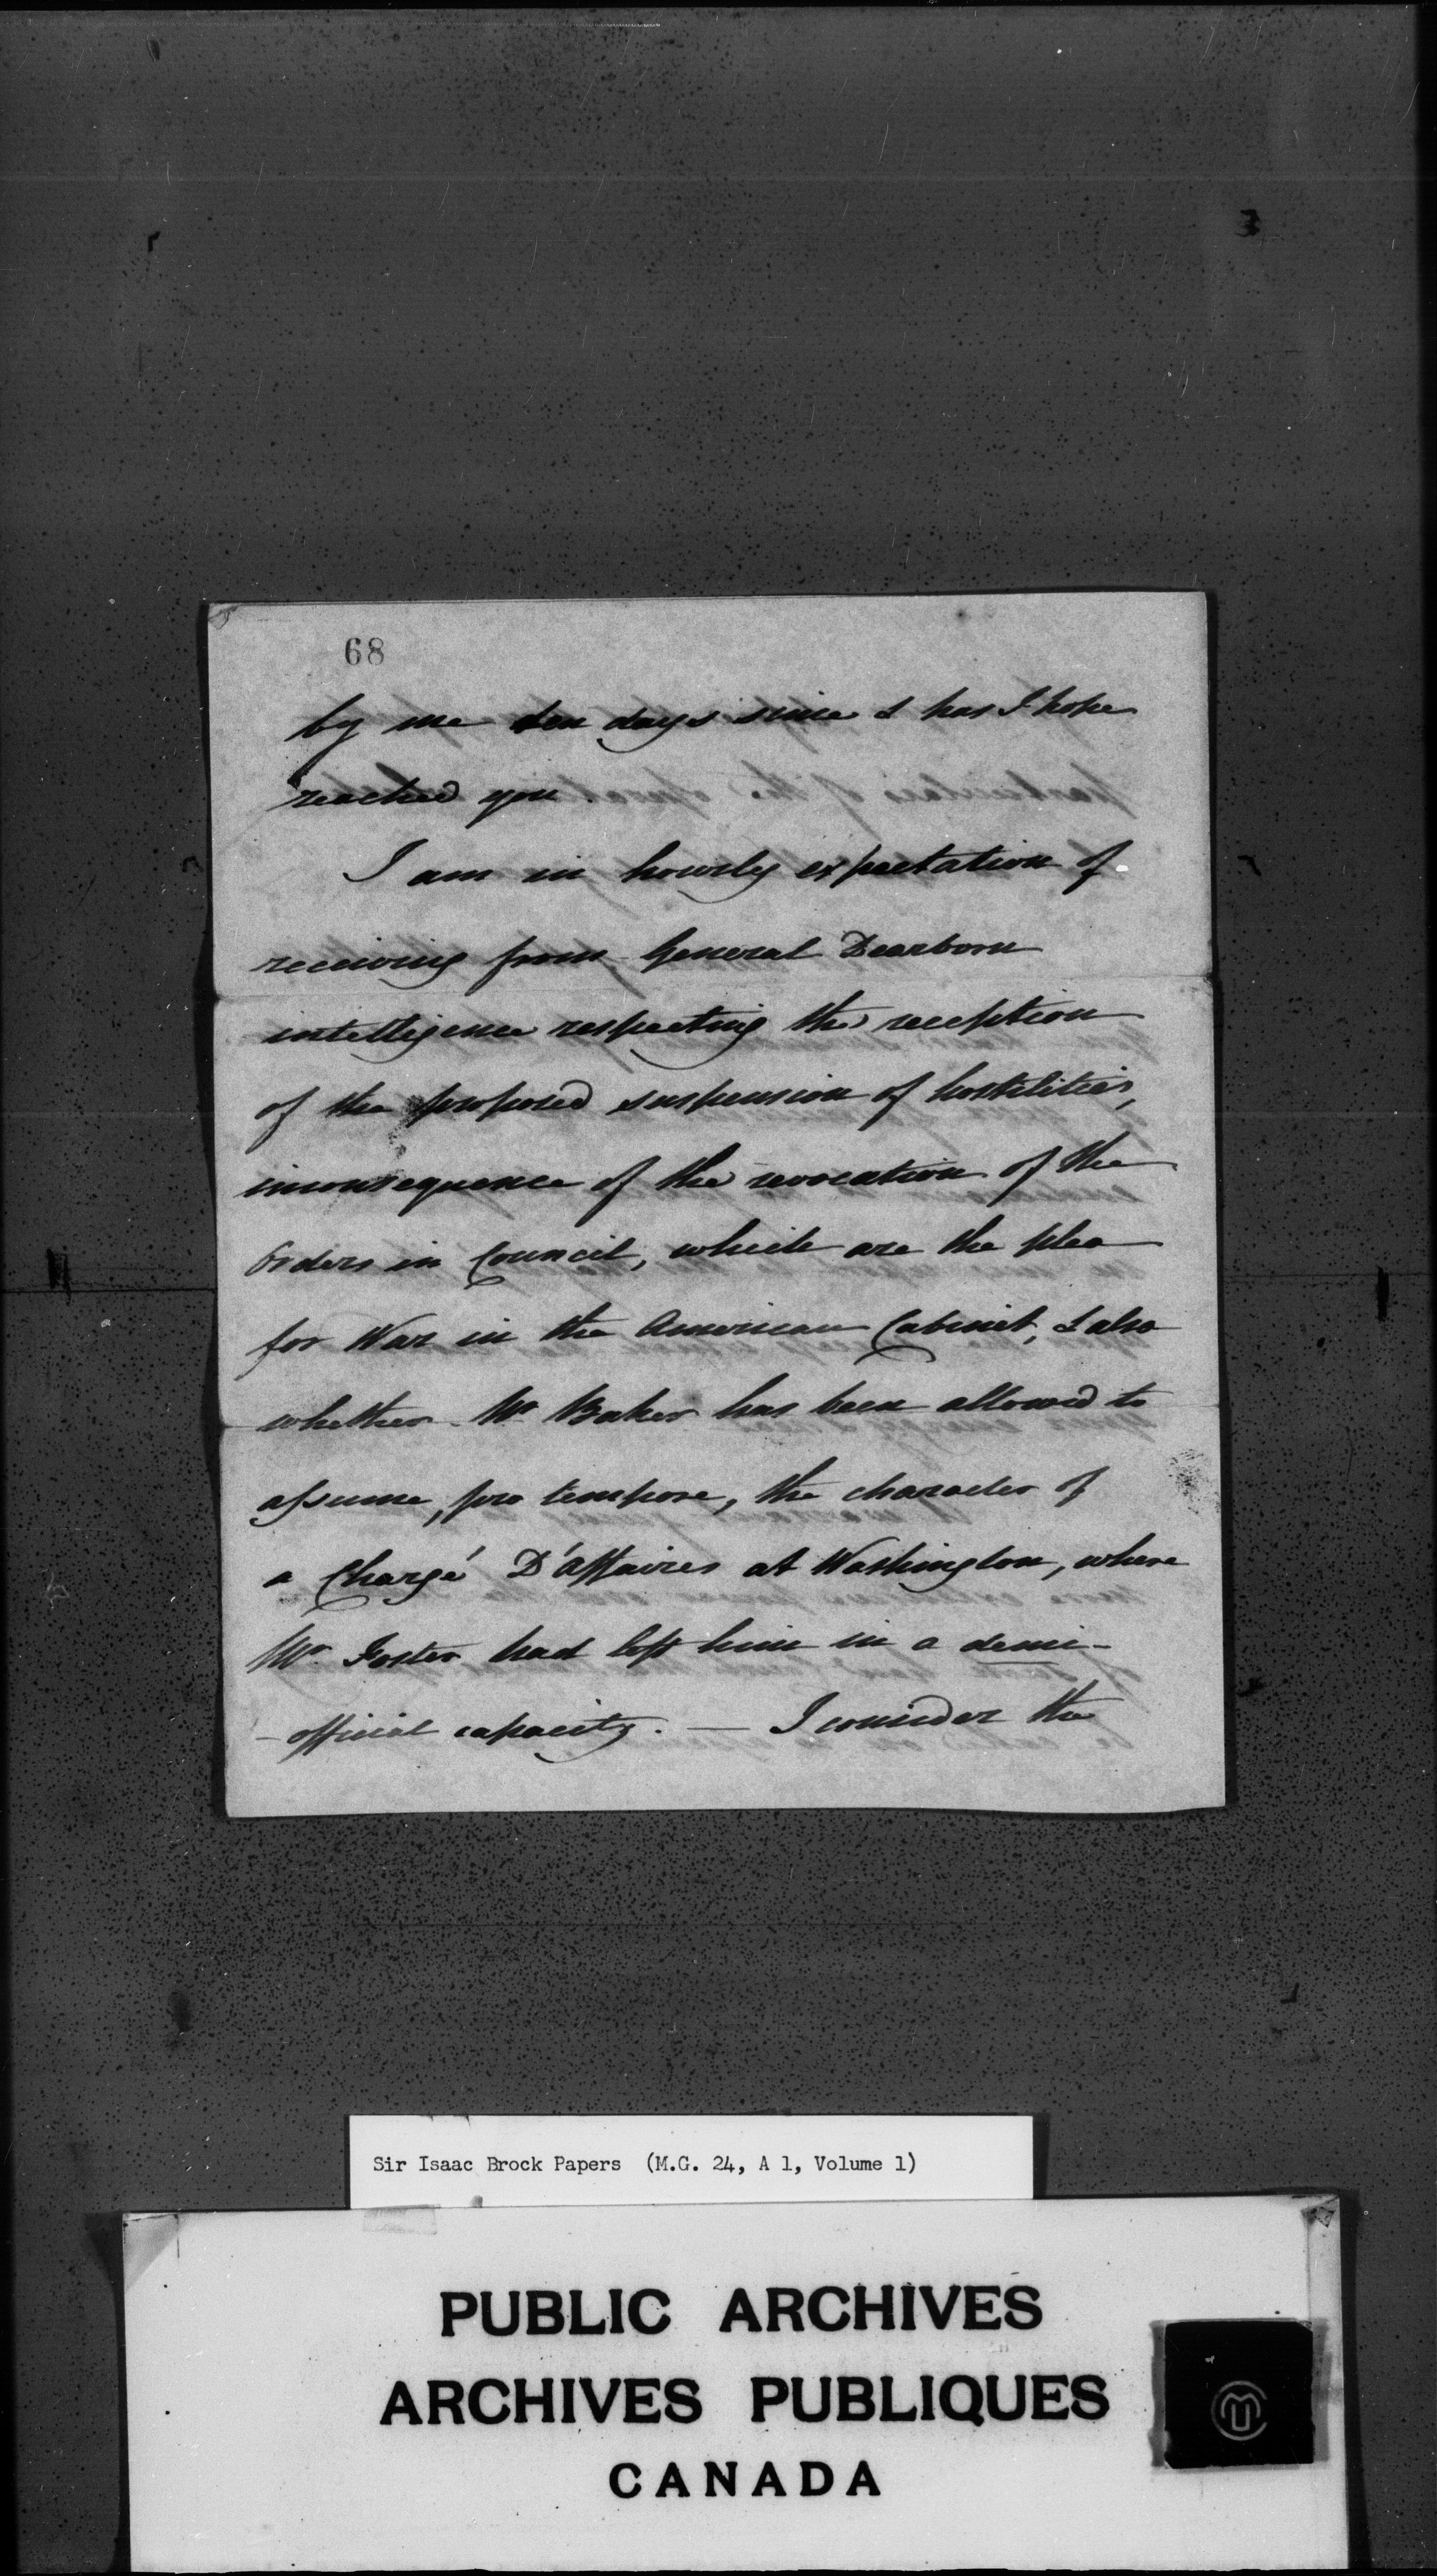 68
by me ten days since & has I hope
reached you.
I am in hourly expectation of
receiving from General Dearborn
intelligence respecting the reception
of the proposed suspension of hostilities,
inconsequence of the revocation of the
Orders in Council, which are the plea
for War in the American Cabinet, & also
whether Mr Baker has been allowed to
assume, pro tempore, the character of
a Chargé D'affaires at Washington, where
Mr. Foster had left him in a demi-
- official capacity. — I consider the
Sir Isaac Brock Papers (M.G. 24, A 1, Volume 1)
PUBLIC ARCHIVES
ARCHIVES PUBLIQUES
CANADA